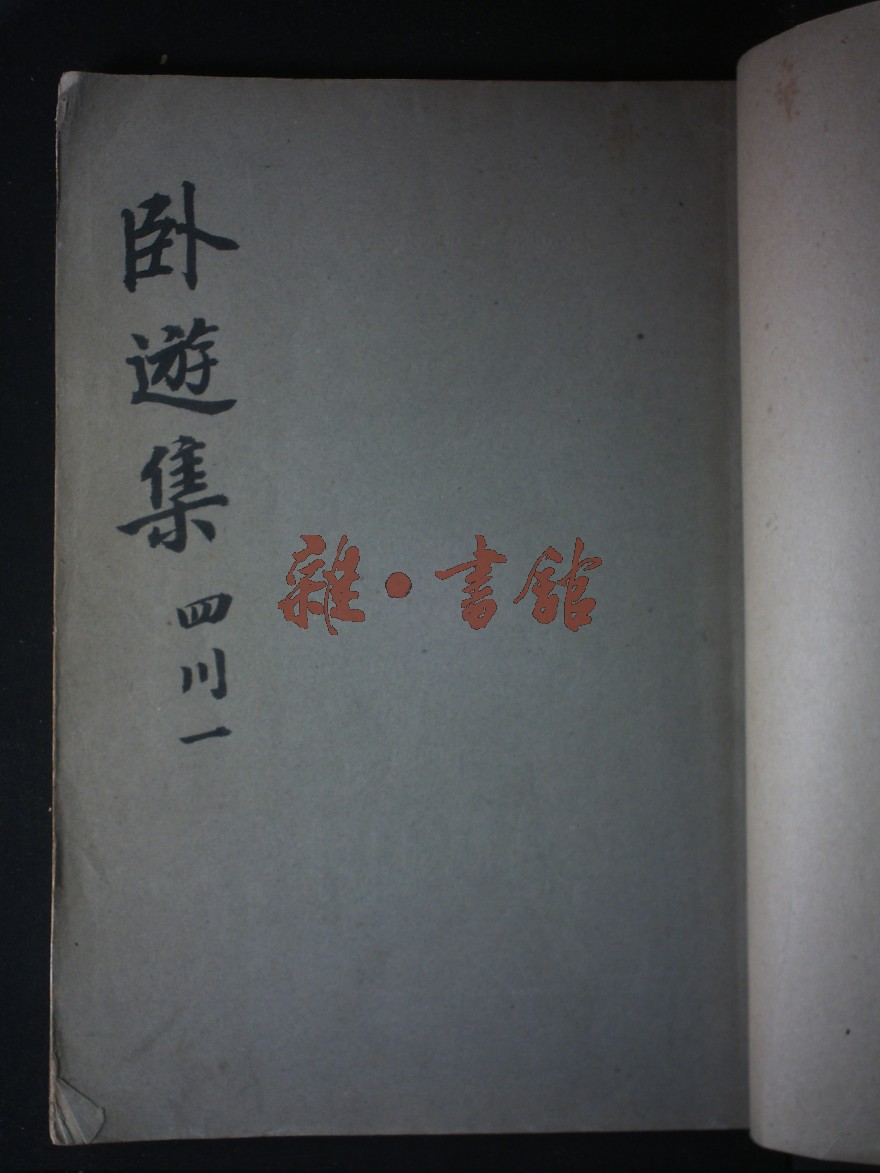 卧遊集 四川一
雜·書館